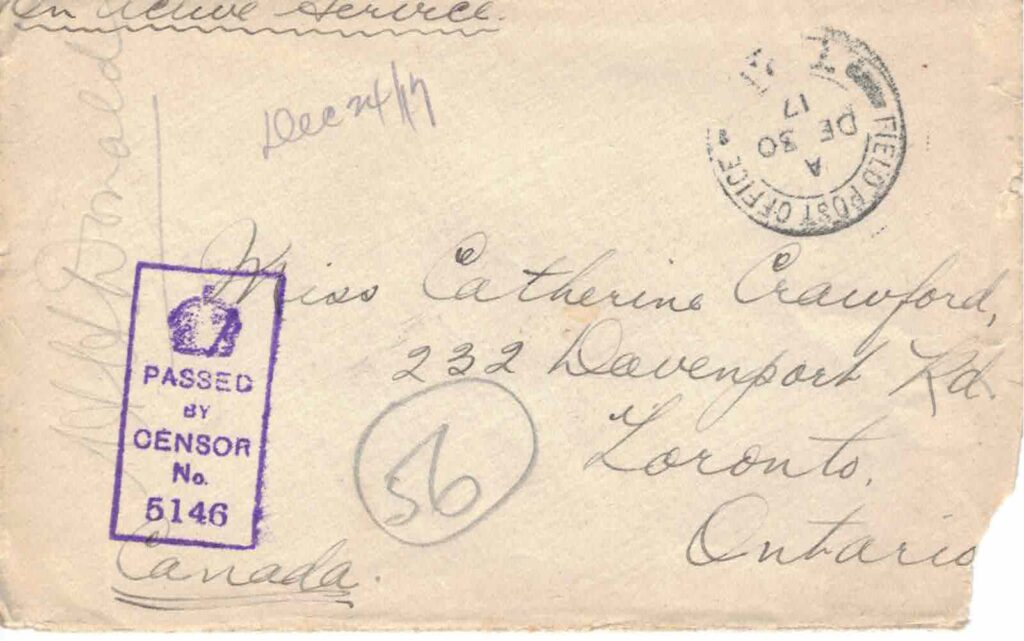 On Active Service.
Dec 24/17
FIELD POST OFFICE
A
30
DE
17
Miss Catherine Crawford,
232 Davenport Rd.
Toronto,
Ontario
Canada.
PASSED
BY
CENSOR
No.
5146
56
Donald